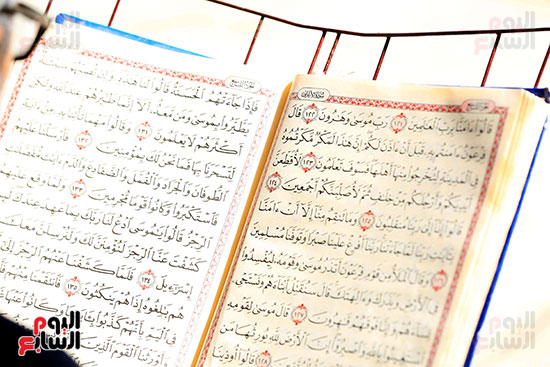 قَالُوٓا۟ ءَامَنَّا بِرَبِّ ٱلْعَٰلَمِينَ ١٢١ رَبِّ مُوسَىٰ وَهَٰرُونَ ١٢٢ قَالَ
فِرْعَوْنُ ءَامَنتُم بِهِۦ قَبْلَ أَنْ ءَاذَنَ لَكُمْ إِنَّ هَٰذَا لَمَكْرٌ مَّكَرْتُمُوهُ
فِى ٱلْمَدِينَةِ لِتُخْرِجُوا۟ مِنْهَآ أَهْلَهَا فَسَوْفَ تَعْلَمُونَ ١٢٣ لَأُقَطِّعَنَّ
أَيْدِيَكُمْ وَأَرْجُلَكُم مِّنْ خِلَٰفٍ ثُمَّ لَأُصَلِّبَنَّكُمْ أَجْمَعِينَ ١٢٤
قَالُوٓا۟ إِنَّآ إِلَىٰ رَبِّنَا مُنقَلِبُونَ ١٢٥ وَمَا تَنقِمُ مِنَّآ إِلَّآ أَنْ ءَامَنَّا
بِـَٔايَٰتِ رَبِّنَا لَمَّا جَآءَتْنَا رَبَّنَآ أَفْرِغْ عَلَيْنَا صَبْرًا وَتَوَفَّنَا مُسْلِمِينَ
١٢٦ وَقَالَ ٱلْمَلَأُ مِن قَوْمِ فِرْعَوْنَ أَتَذَرُ مُوسَىٰ وَقَوْمَهُۥ لِيُفْسِدُوا۟
فِى ٱلْأَرْضِ وَيَذَرَكَ وَءَالِهَتَكَ قَالَ سَنُقَتِّلُ أَبْنَآءَهُمْ وَنَسْتَحْىِۦ
نِسَآءَهُمْ وَإِنَّا فَوْقَهُمْ قَٰهِرُونَ ١٢٧ قَالَ مُوسَىٰ لِقَوْمِهِ
ٱسْتَعِينُوا۟ بِٱللَّهِ وَٱصْبِرُوٓا۟ إِنَّ ٱلْأَرْضَ لِلَّهِ يُورِثُهَا مَن
١٢٨ قَالُوٓا۟ أُوذِينَا
فَإِذَا جَآءَتْهُمُ ٱلْحَسَنَةُ قَالُوا۟ لَنَا هَٰذِهِۦ وَإِن تُصِبْهُمْ
يَطَّيَّرُوا۟ بِمُوسَىٰ وَمَن مَّعَهُۥٓ أَلَآ
أَكْثَرَهُمْ لَا يَعْلَمُونَ ١٣١ وَقَالُوا۟ مَهْمَا
لِّتَسْحَرَنَا بِهَا فَمَا نَحْنُ لَكَ بِمُؤْمِنِينَ
ٱلطُّوفَانَ وَٱلْجَرَادَ وَٱلْقُمَّلَ وَٱلضَّفَادِعَ وَٱلدَّمَ
فَٱسْتَكْبَرُوا۟ وَكَانُوا۟ قَوْمًا مُّجْرِمِينَ ١٣٣ وَلَمَّا وَقَعَ
ٱلرِّجْزُ قَالُوا۟ يَٰمُوسَى ٱدْعُ لَنَا رَبَّكَ بِمَا عَهِدَ
كَشَفْتَ عَنَّا ٱلرِّجْزَ لَنُؤْمِنَنَّ لَكَ وَلَنُرْسِلَنَّ مَعَكَ
إِسْرَٰٓءِيلَ ١٣٤ فَلَمَّا كَشَفْنَا عَنْهُمُ ٱلرِّجْزَ إِلَىٰٓ
هُم بَٰلِغُوهُ إِذَا هُمْ يَنكُثُونَ ١٣٥ فَٱنتَقَمْنَا مِنْهُمْ
فِى ٱلْيَمِّ بِأَنَّهُمْ كَذَّبُوا۟ بِـَٔايَٰتِنَا وَكَانُوا۟ عَنْهَا
وَأَوْرَثْنَا ٱلْقَوْمَ ٱلَّذِينَ
اليوم السابع
اليوم السابع
اليوم السابع
اليوم السابع